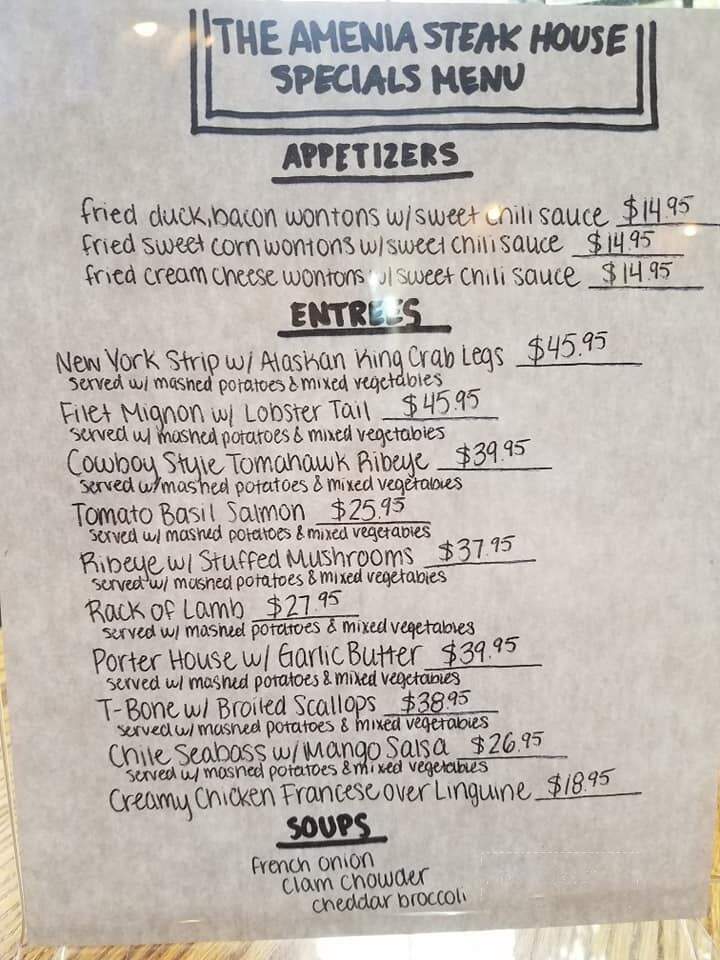 THE AMENIA STEAK HOUSE
SPECIALS MENU
APPETIZERS
fried duck, bacon wontons w/ sweet chili sauce $14.95
fried sweet corn wontons w/ sweet chili sauce $14.95
fried cream cheese wontons w/ sweet chili sauce $14.95
ENTREES
New York Strip w/ Alaskan King Crab Legs $45.95
served w/ mashed potatoes & mixed vegetables
Filet Mignon w/ Lobster Tail $45.95
served w/ mashed potatoes & mixed vegetables
Cowboy Style Tomahawk Ribeye $39.95
served w/ mashed potatoes & mixed vegetables
Tomato Basil Salmon $25.95
served w/ mashed potatoes & mixed vegetables
Ribeye w/ Stuffed Mushrooms $37.95
served w/ mashed potatoes & mixed vegetables
Rack of Lamb $27.95
served w/ mashed potatoes & mixed vegetables
Porter House w/ Garlic Butter $39.95
served w/ mashed potatoes & mixed vegetables
T-Bone w/ Broiled Scallops $38.95
served w/ mashed potatoes & mixed vegetables
Chile Seabass w/ Mango Salsa $26.95
served w/ mashed potatoes & mixed vegetables
Creamy Chicken Francese over Linguine $18.95
SOUPS
french onion
clam chowder
cheddar broccoli